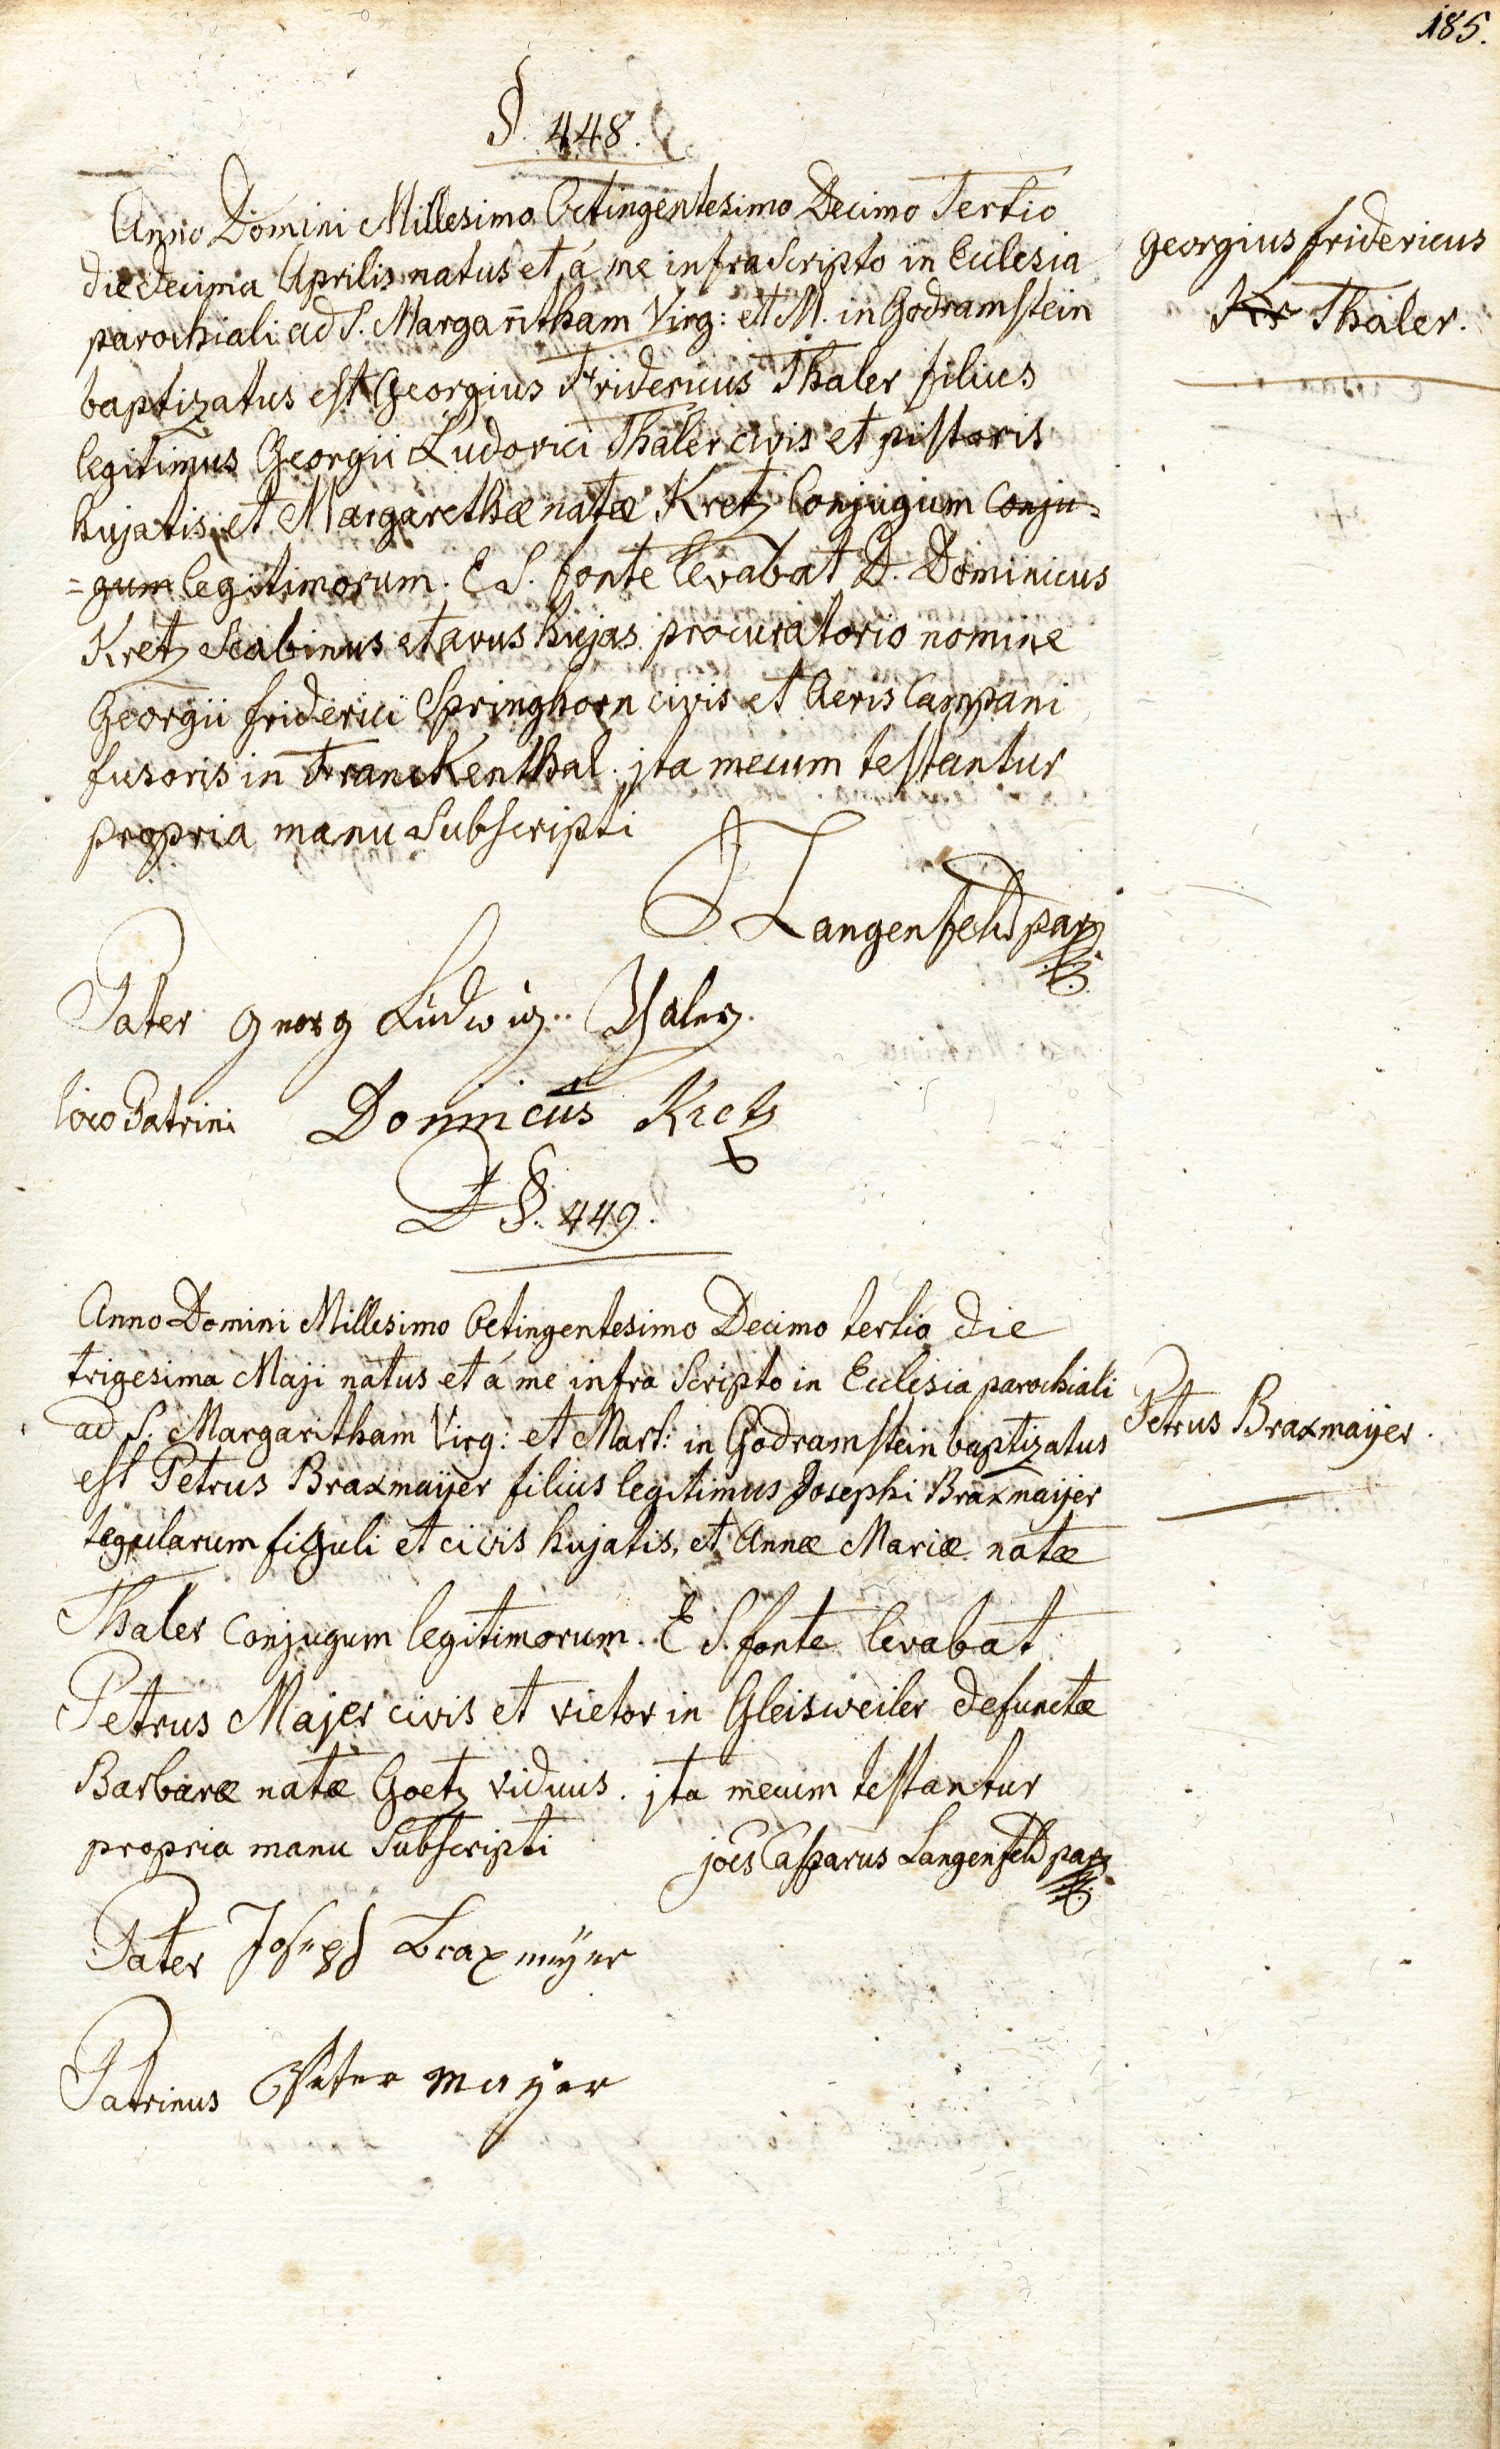 185.
§. 448.
Anno Domini Millesimo Octingentesimo Decimo Tertio
die decima Aprilis natus et á me infra Scripto in Ecclesia
parochiali ad S. Margaritham Virg: et M. in Godramstein
baptizatus est Georgius Fridericus Thaler filius
legitimus Georgii Ludovici Thaler civis et pistoris
hujatis, et Margarethæ natæ Kretz Conjugium Conju=
=gum legitimorum. E S. fonte levabat D. Dominicus
Kretz Scabinus et avus hujas procuratorio nomine
Georgii friderici Springhorn civis et Aeris Campani
fusoris in Franckenthal. jta mecum testantur
propria manu Subscripti
Georgius fridericus
Kr Thaler.
J Langenfeld par
Pater Georg Ludwig Thaler.
loco Patrini Dominicus Kretz
§. 449.
Anno Domini Millesimo Octingentesimo Decimo tertio die
trigesima Maji natus et á me infra Scripto in Ecclesia parochiali
ad S. Margaritham Virg: et Mart: in Godramstein baptizatus
est Petrus Braxmaÿer filius legitimus Josephi Braxmaÿer
tegularum figuli et civis hujatis, et Annæ Mariæ natæ
Thaler Conjugum legitimorum. E S. fonte levabat
Petrus Majer civis et vietor in Gleisweiler defunctæ
Barbaræ natæ Goetz viduus. jta mecum testantur
propria manu Subscripti
Petrus Braxmaÿer.
joes Casparus Langenfeld par
Pater Joseph Braxmeÿer
Patrinus Peter Maÿer